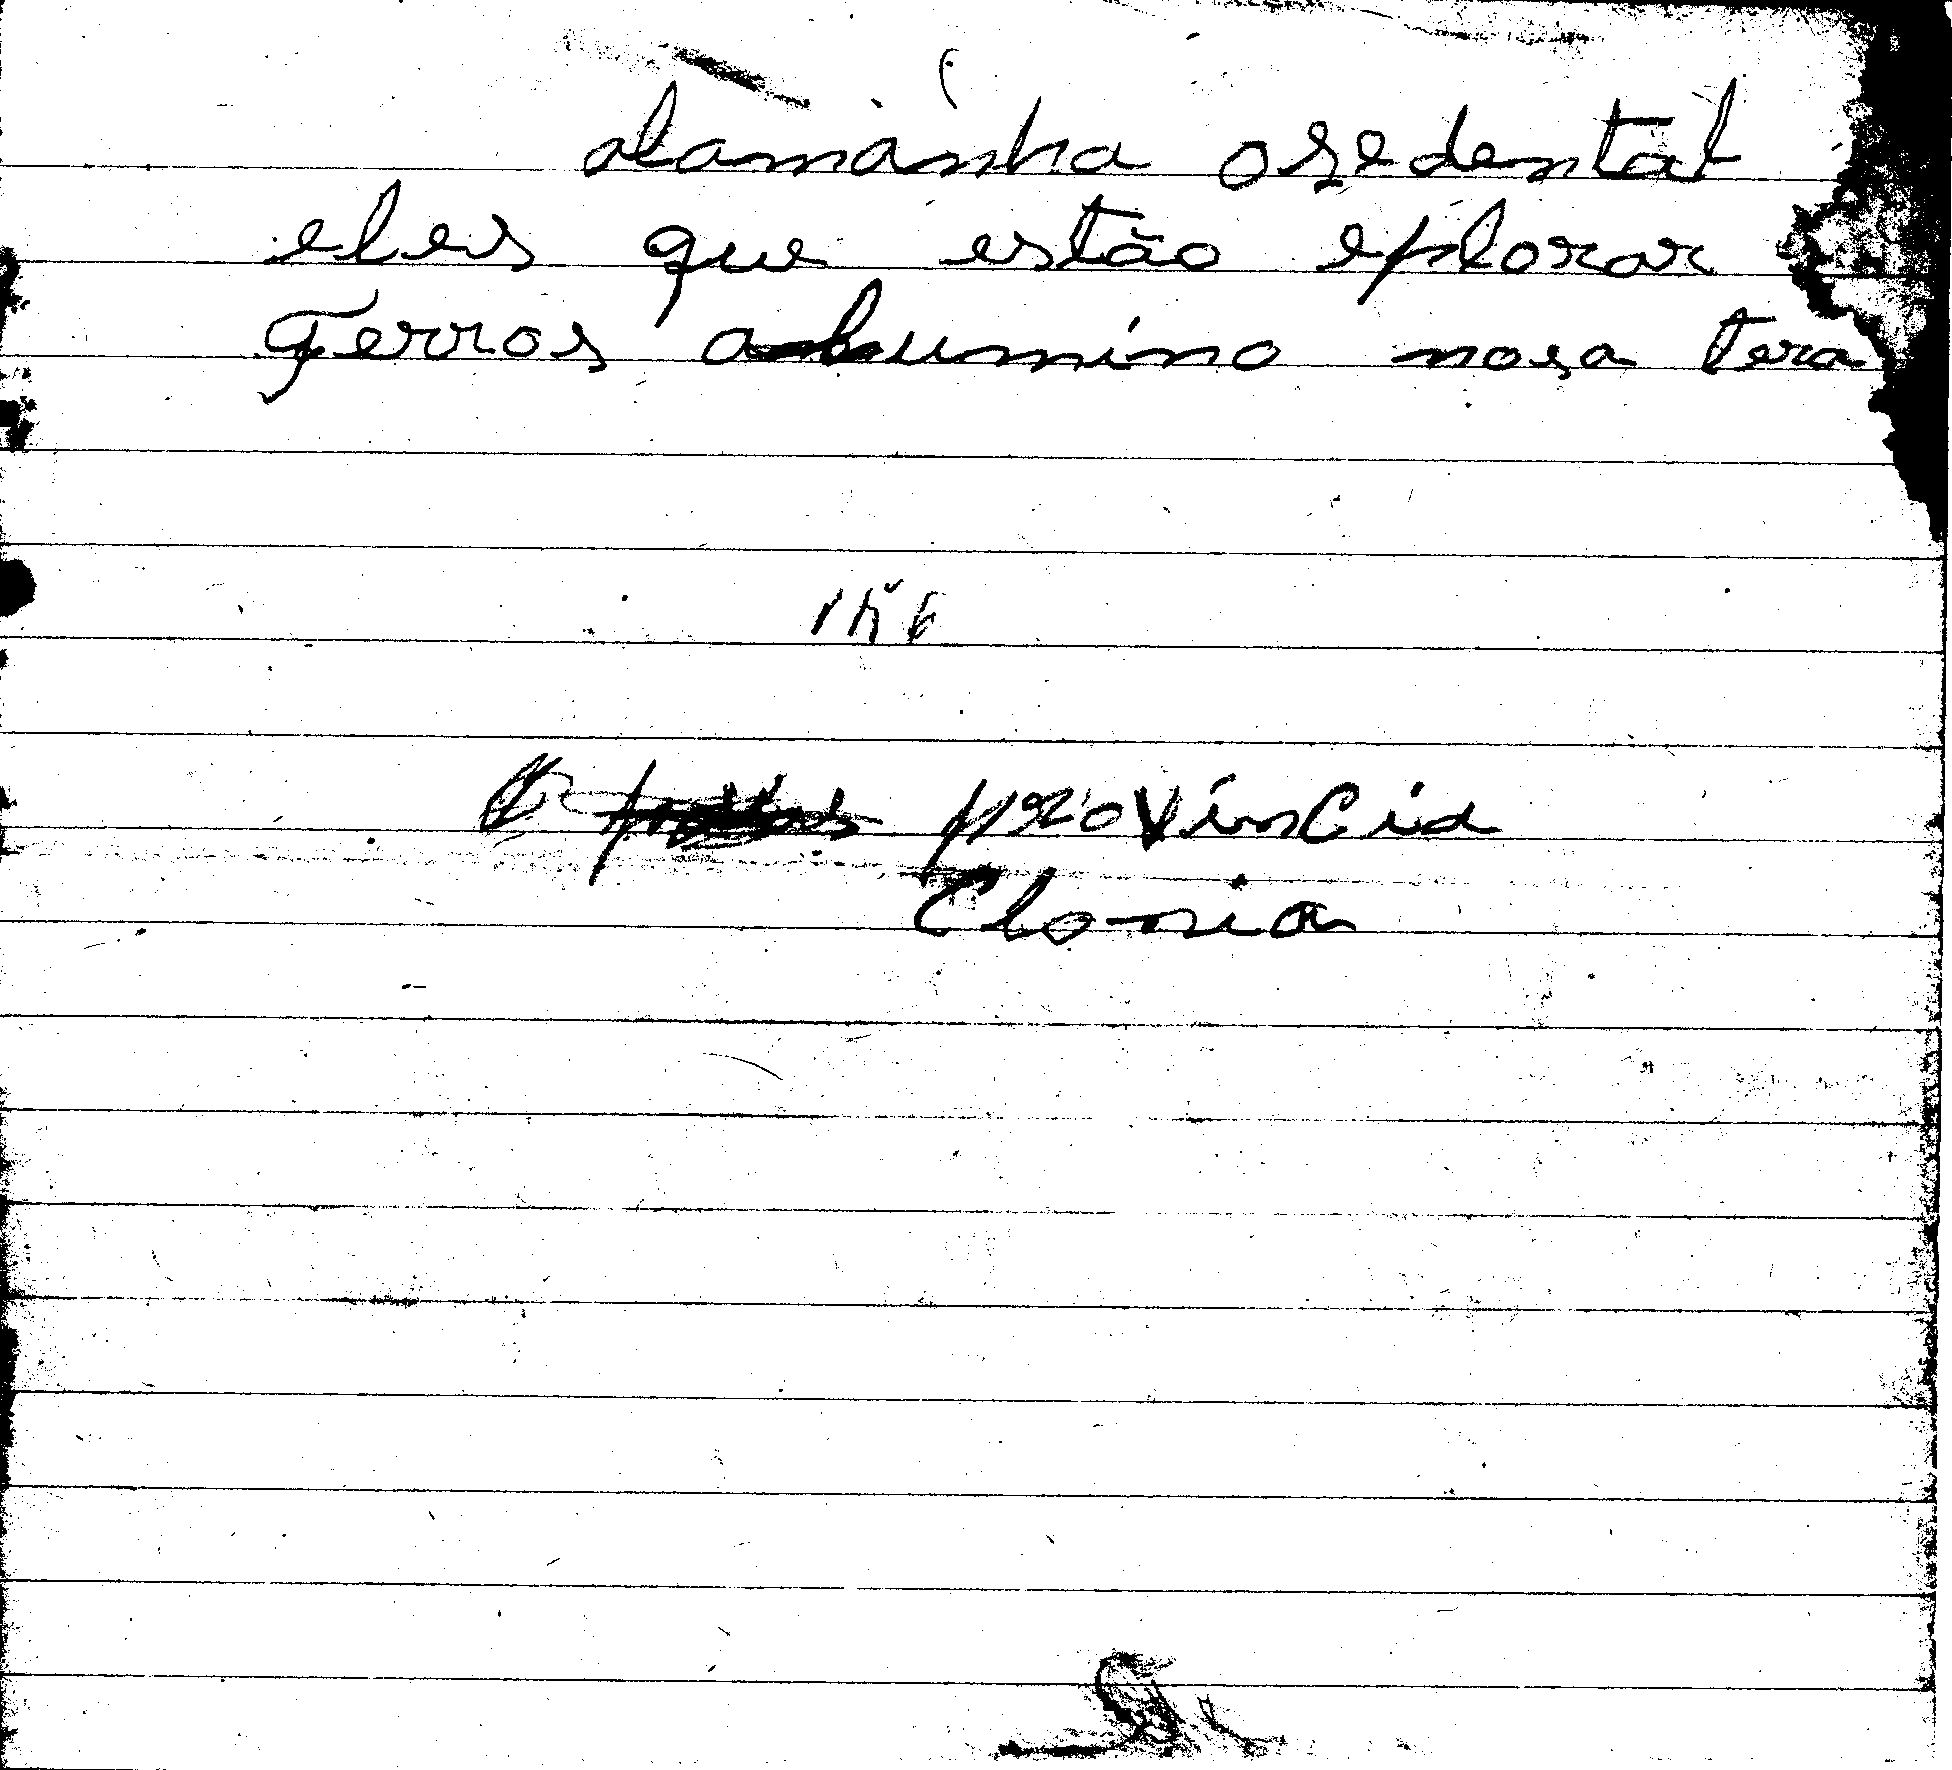 alamánha ozedental
eles que estão eplorar
Ferros alumíno nosa tera
província
Clonia